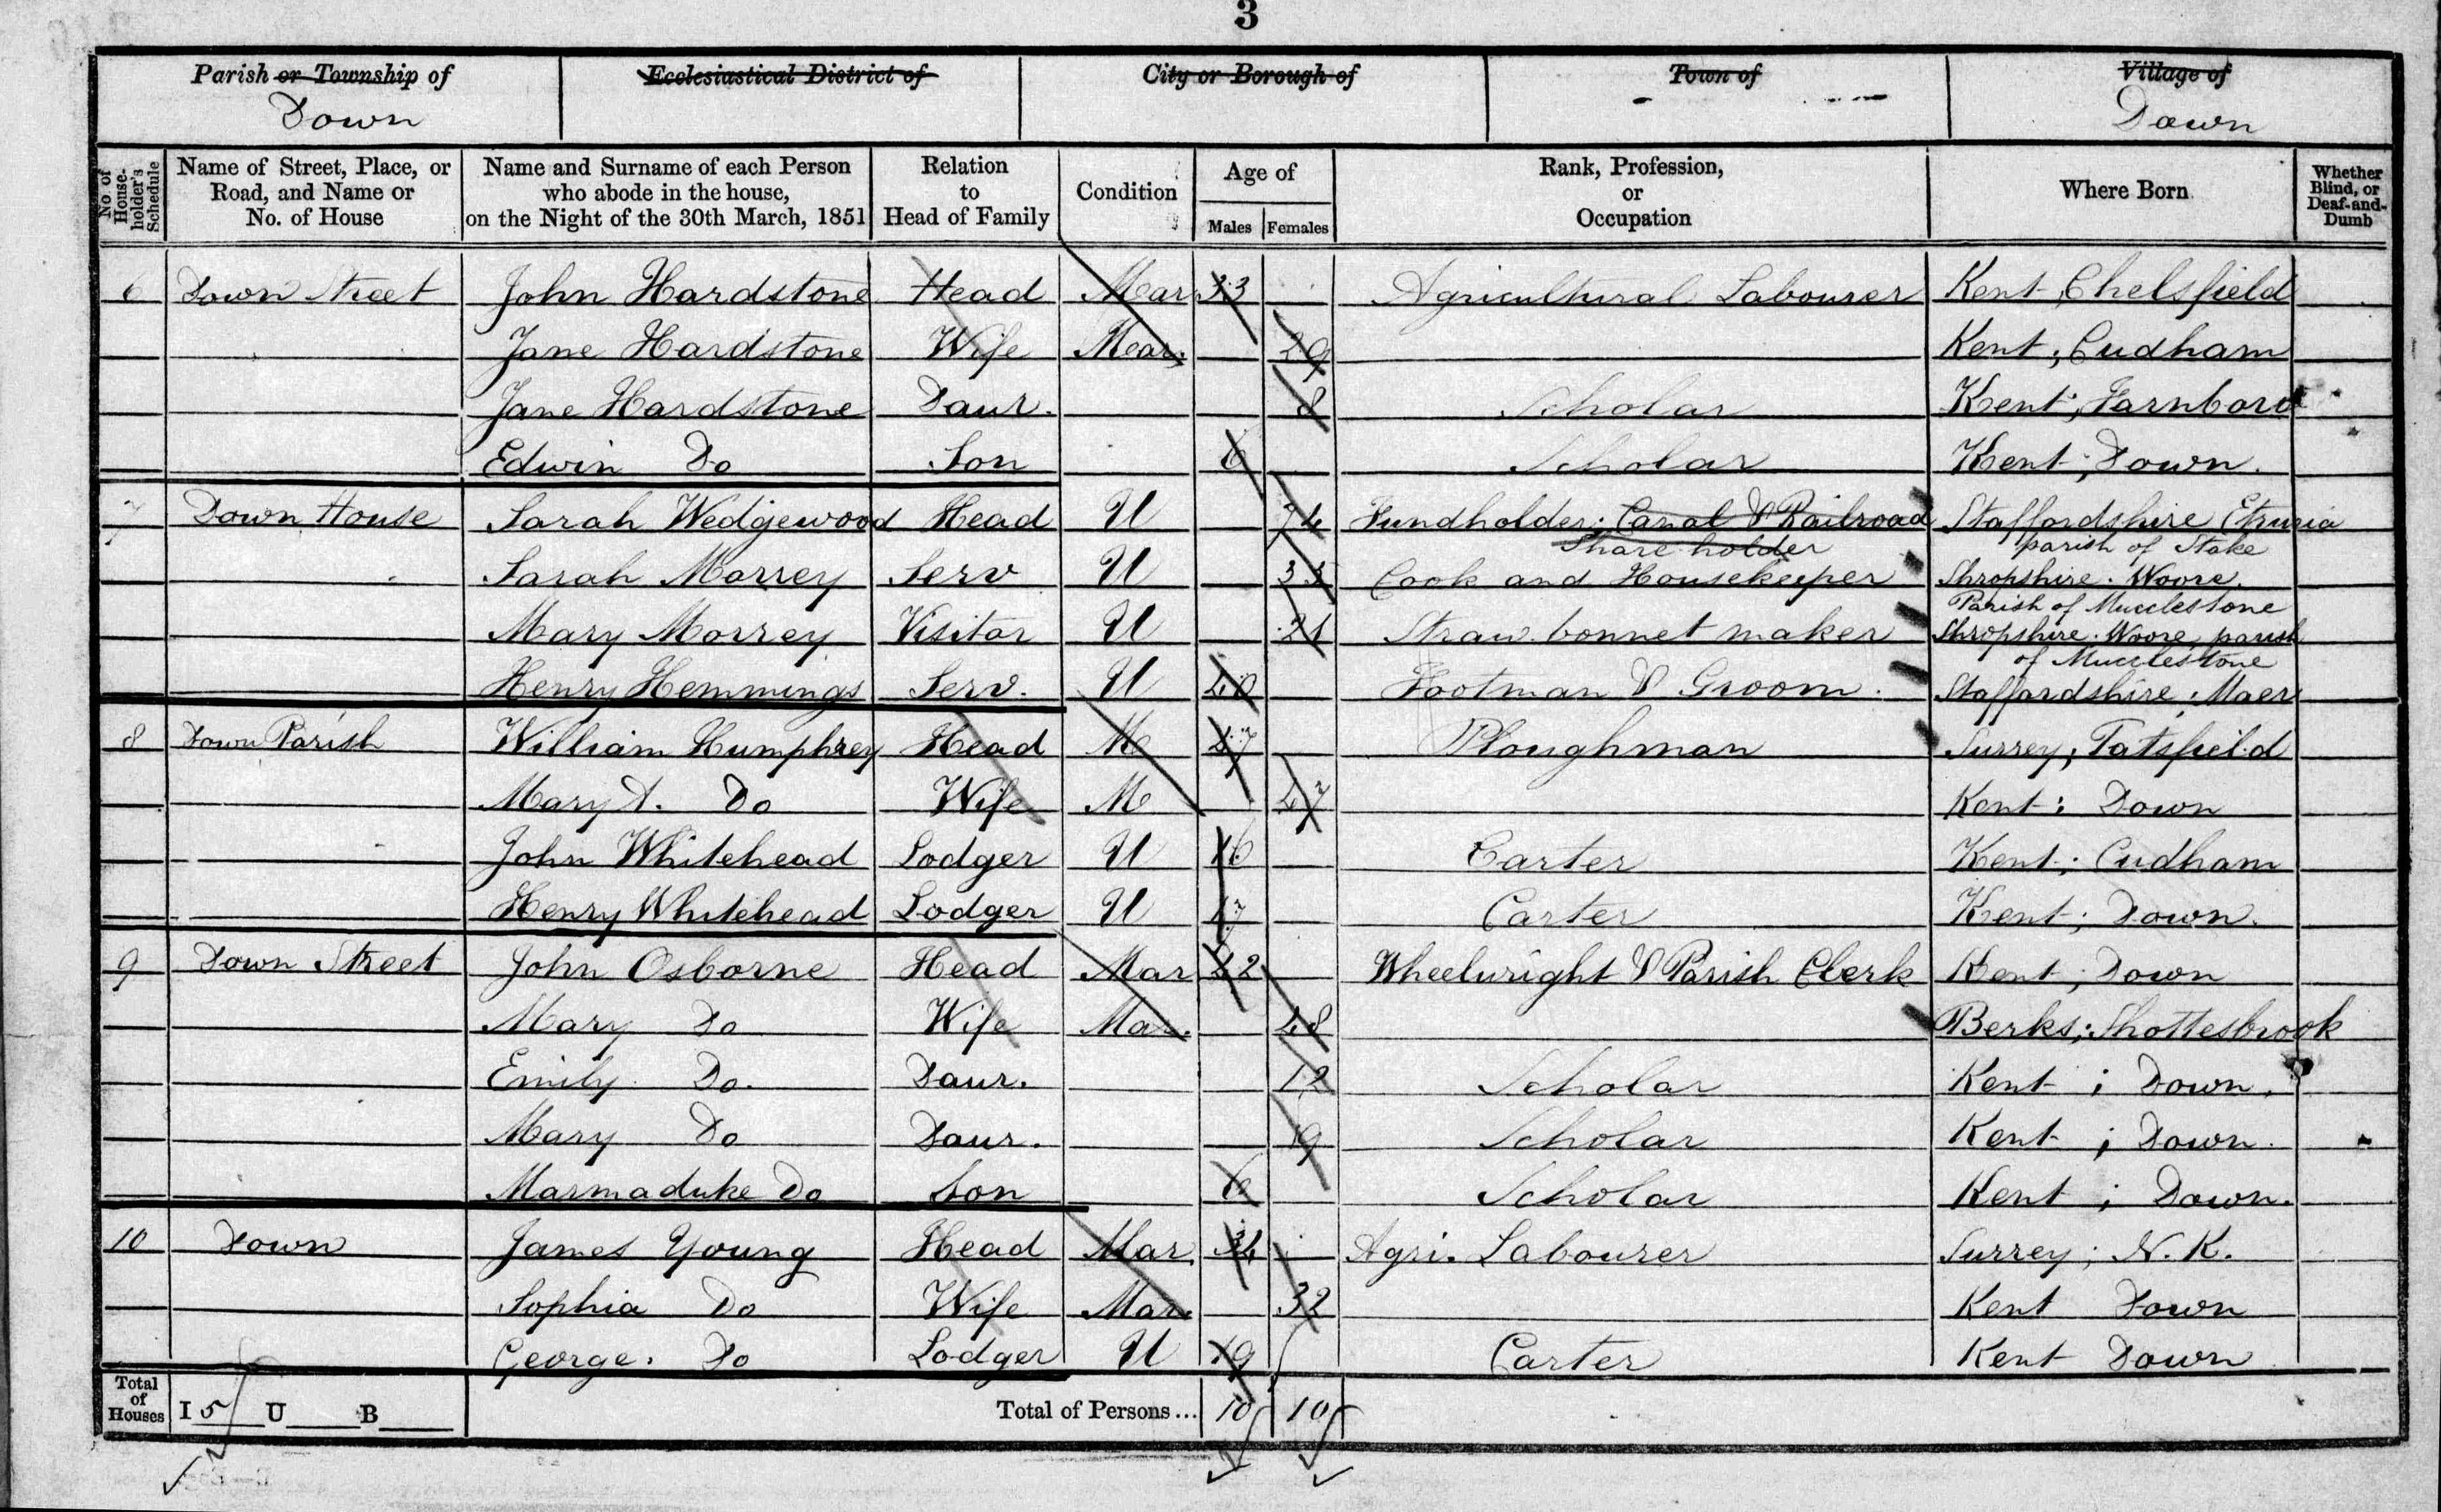 3
Parish or Township of Ecclesiastical District of City or Borough of Town of Village of
Down Down
No. of House-holder's Schedule
Name of Street, Place, or Road, and Name or No. of House
Name and Surname of each Person who abode in the house, on the Night of the 30th March, 1851
Relation to Head of Family
Condition
Age of
Males Females
Rank, Profession, or Occupation
Where Born
Whether Blind, or Deaf-and-Dumb
6 Down Street John Hardstone Head Mar 33 Agricultural Labourer Kent, Chelsfield
Jane Hardstone Wife Mar. 29 Kent; Cudham
Jane Hardstone Daur. 8 Scholar Kent; Farnboro
Edwin Do Son 6 Scholar Kent; Down.
7 Down House Sarah Wedgewood Head U 74 Fundholder; Canal & Railroad Staffordshire Etruria
Share holder parish of Stoke
Sarah Morrey Serv U 33 Cook and Housekeeper Shropshire. Woore.
Parish of Mucclestone
Mary Morrey Visitor U 21 Straw bonnet maker Shropshire. Woore, parish
of Mucclestone
Henry Hemmings Serv. U 40 Footman & Groom. Staffordshire; Maer
8 Down Parish William Humphrey Head M 47 Ploughman Surrey; Tatsfield
Mary A. Do Wife M 47 Kent; Down
John Whitehead Lodger U 16 Carter Kent; Cudham
Henry Whitehead Lodger U 17 Carter Kent; Down.
9 Down Street John Osborne Head Mar 42 Wheelwright & Parish Clerk Kent; Down
Mary Do Wife Mar. 48 Berks; Shottesbrook
Emily Do. Daur. 12 Scholar Kent; Down.
Mary Do Daur. 9 Scholar Kent; Down.
Marmaduke Do Son 6 Scholar Kent; Down.
10 Down James Young Head Mar. 34 Agri. Labourer Surrey; N. K.
Sophia Do Wife Mar. 32 Kent Down
George. Do Lodger U 19 Carter Kent Down
Total of Houses I 5 U B Total of Persons... 10 10